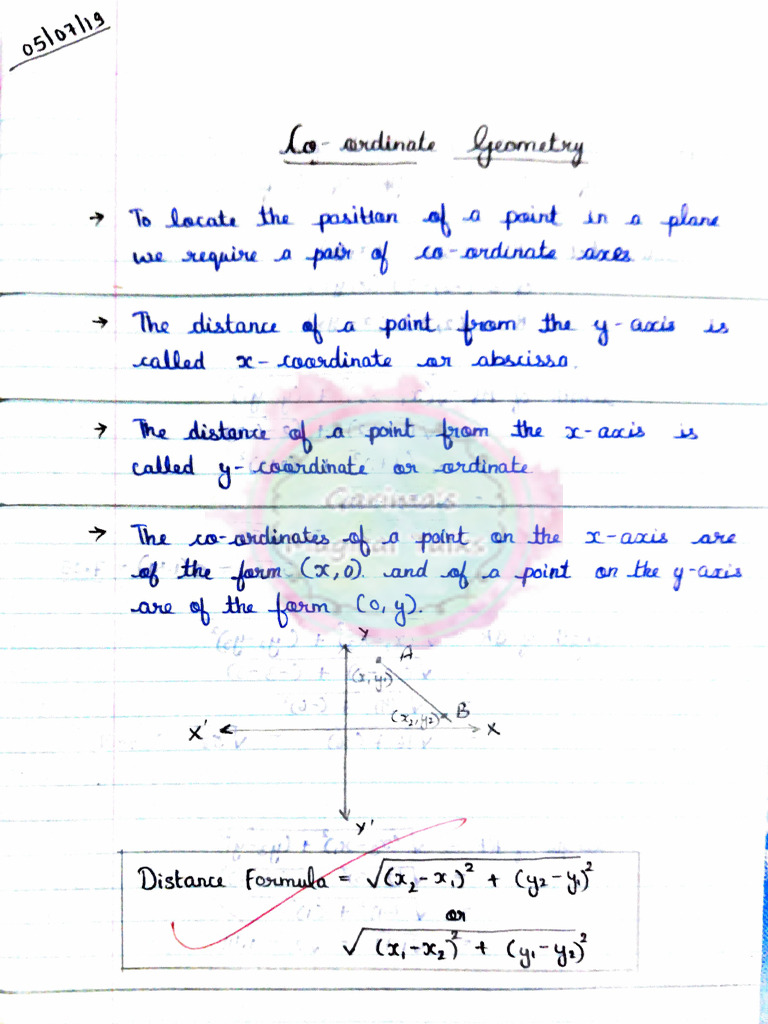 05/07/19
Co-ordinate Geometry
→ To locate the position of a point in a plane
we require a pair of co-ordinate axes
→ The distance of a point from the y-axis is
called x-coordinate or abscissa.
→ The distance of a point from the x-axis is
called y-coordinate or ordinate
Garima's
→ The co-ordinates of a point on the x-axis are
of the form (x,0) and of a point on the y-axis
are of the form (0,y).
Y
A
(x,y₁)
(x₂,y₂) B
X' X
Y'
Distance Formula = √(x₂-x₁)² + (y₂-y₁)²
or
√(x₁-x₂)² + (y₁-y₂)²